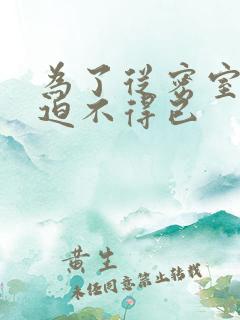 為了從密室
迫不得已
黃生
未經同意禁止轉載